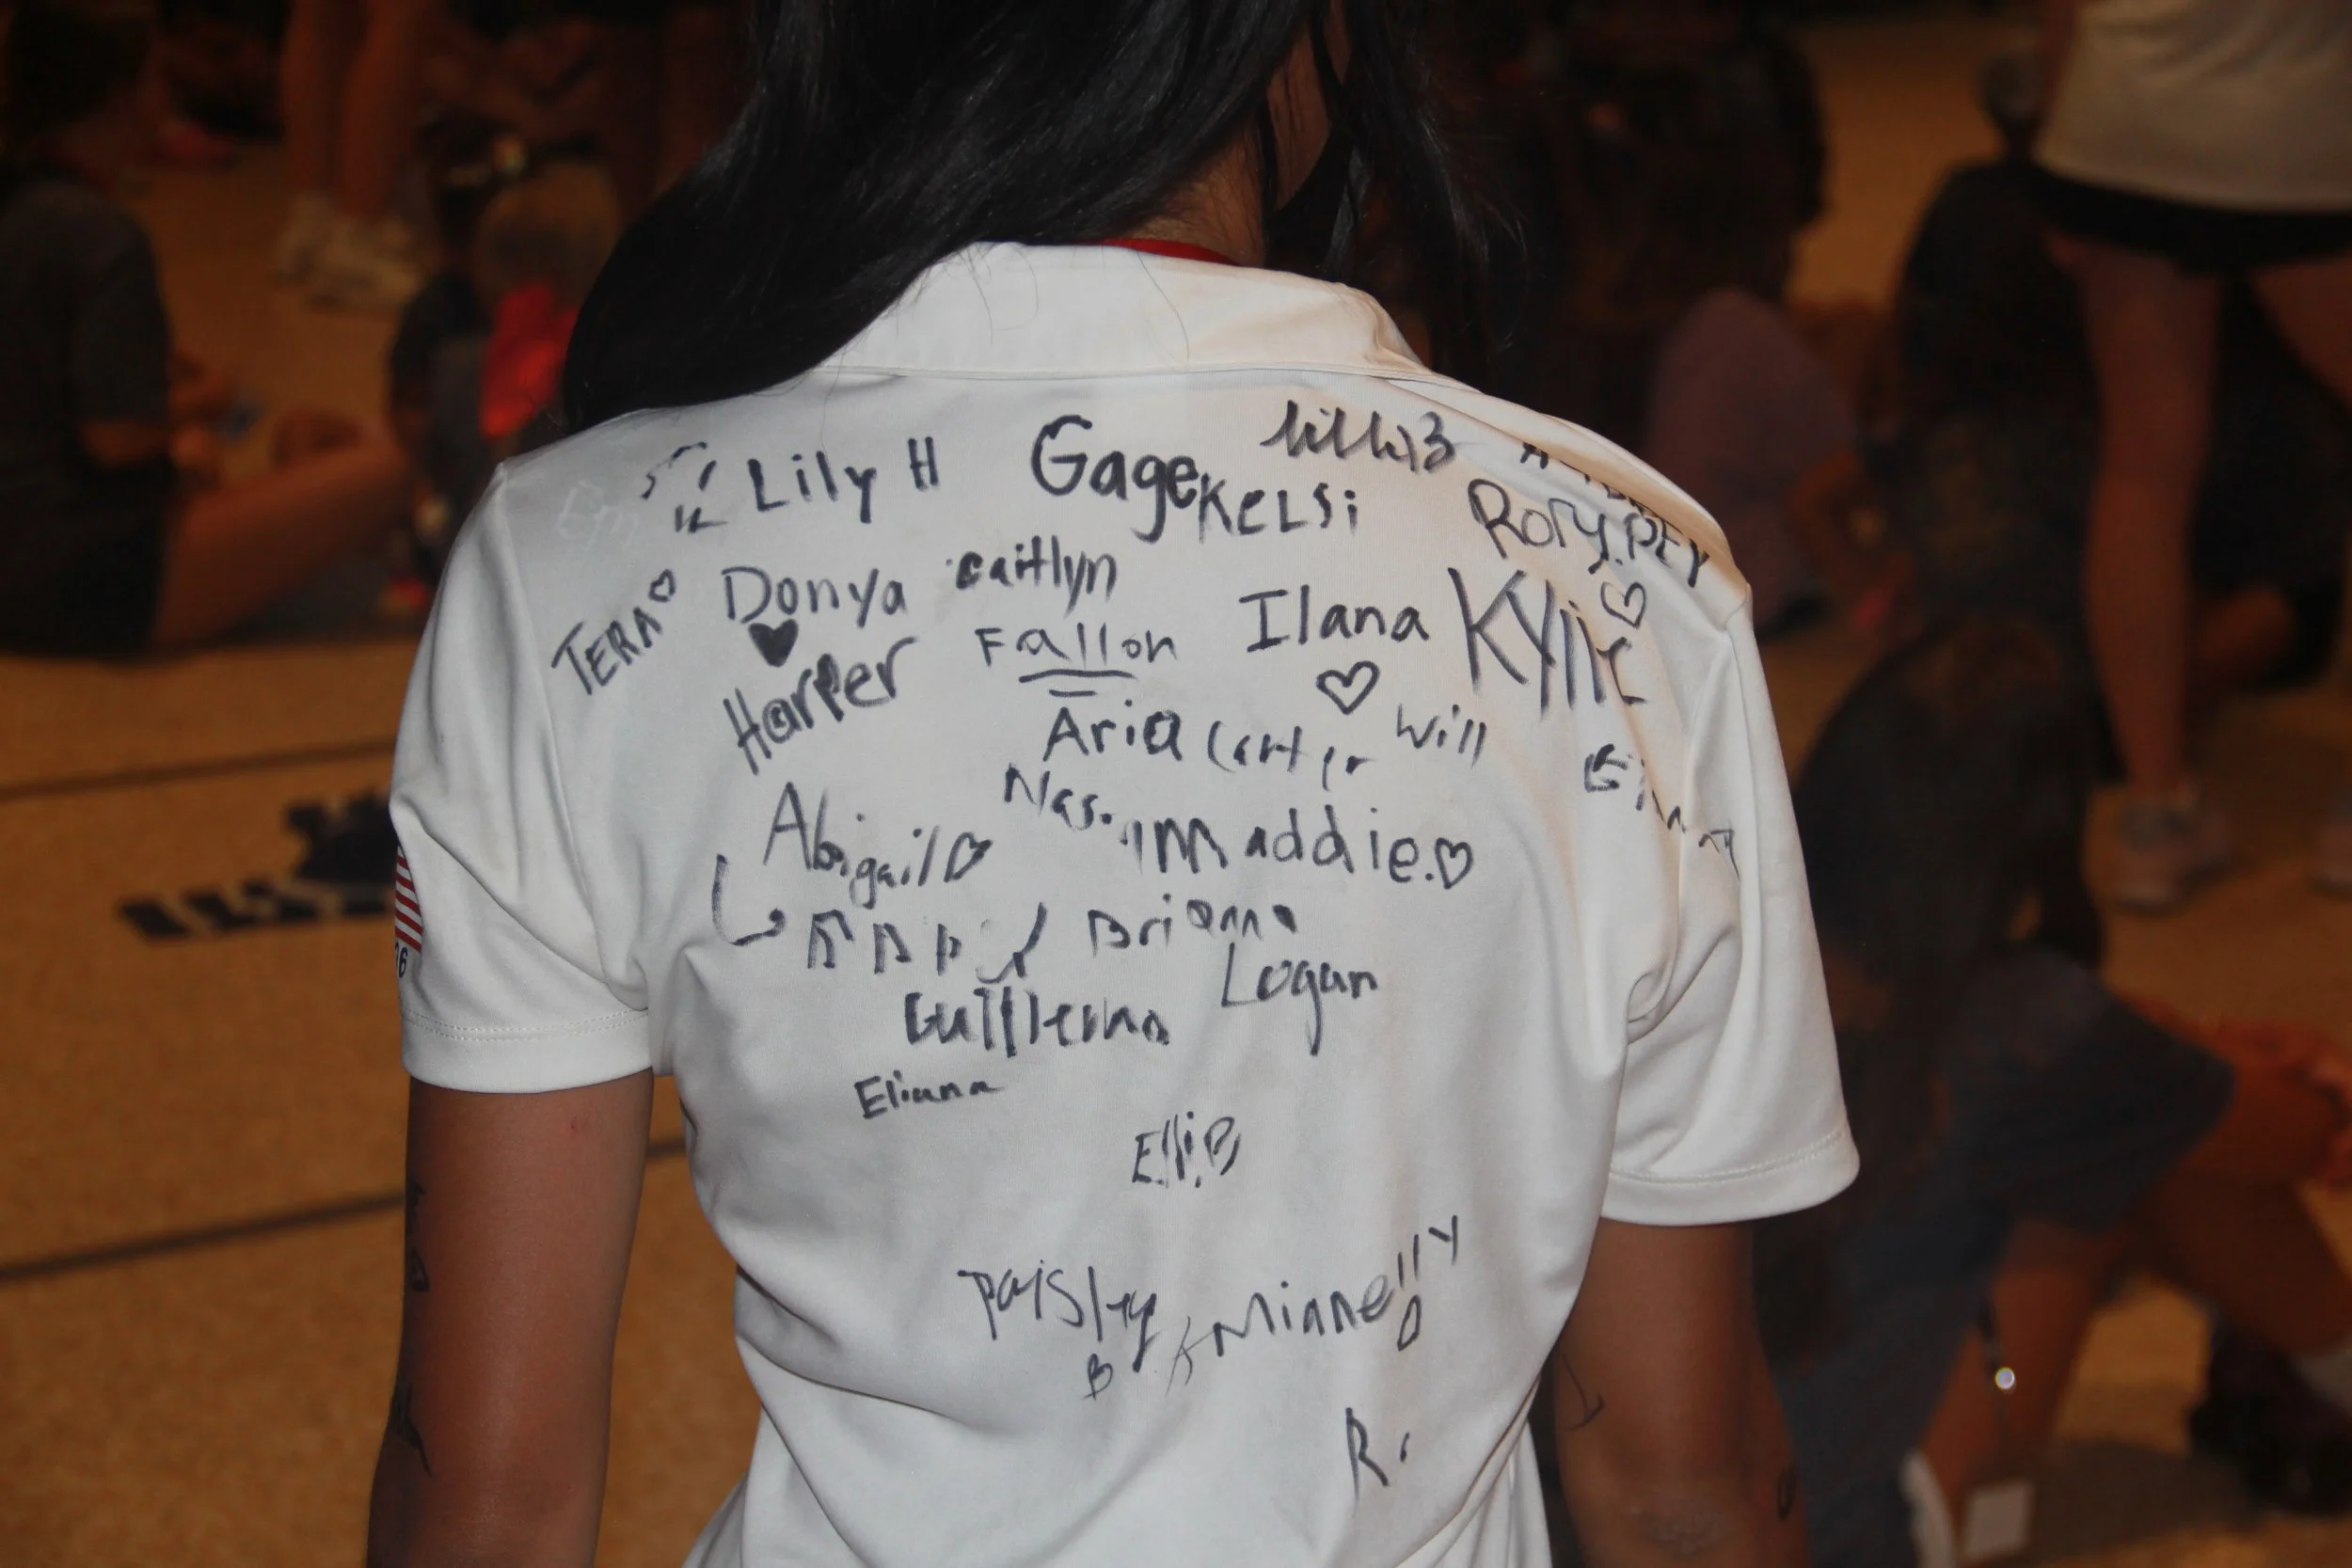 Lily H
Gage
Kelsi
Rory.
TERA
Donya
caitlyn
Ilana
KYlie
Harper
Fallon
Aria
Carter
Will
Abigail
Maddie.
Brianna
Logan
Guillermo
Eliana
Elli.B
Paisley
B
Minnelly
R.